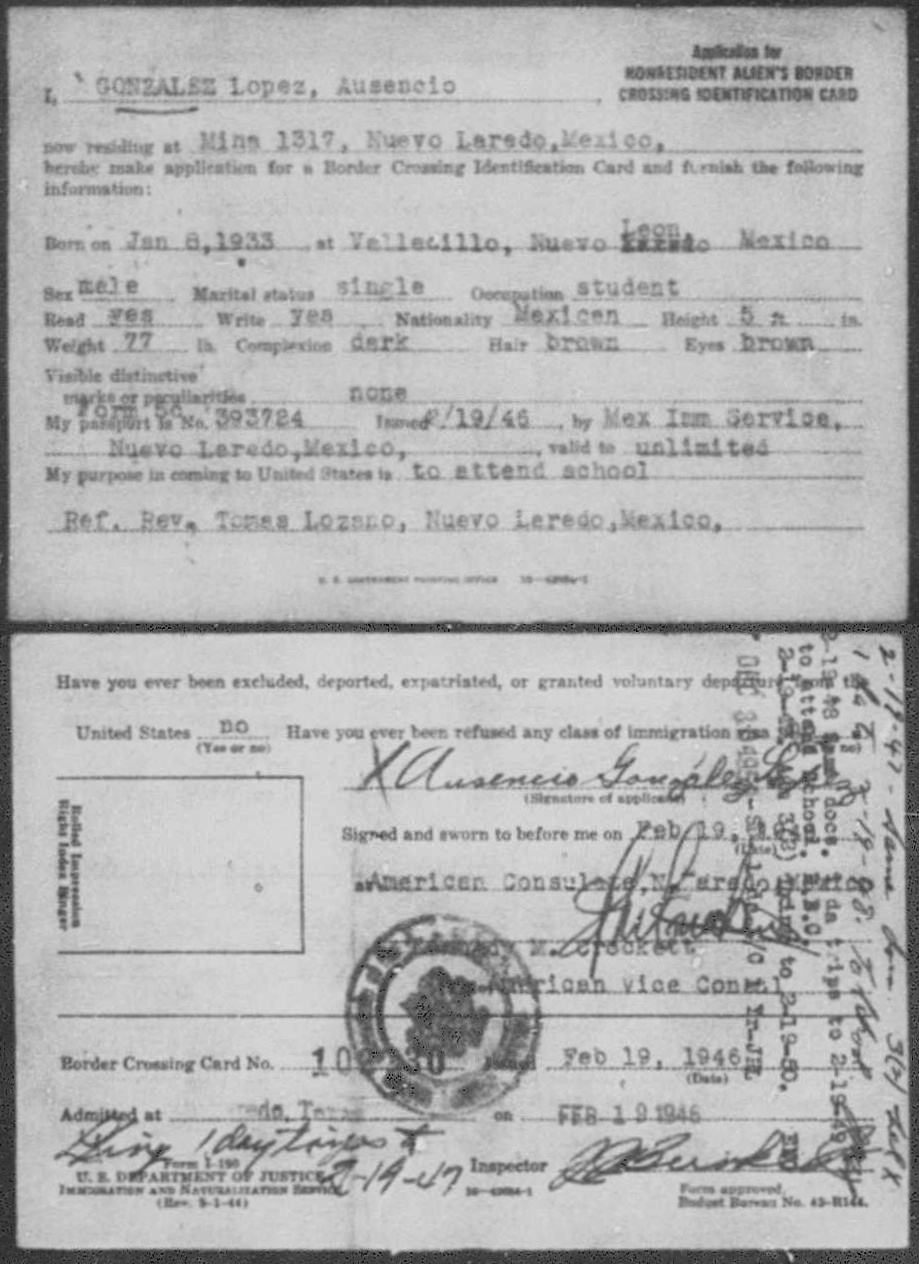 Application for
NONRESIDENT ALIEN'S BORDER
CROSSING IDENTIFICATION CARD
I, GONZALEZ Lopez, Ausencio
now residing at Mina 1317, Nuevo Laredo,Mexico,
hereby make application for a Border Crossing Identification Card and furnish the following
information:
Leon,
Born on Jan 8,1933 at Vallecillo, Nuevo Laredo Mexico
Sex male Marital status single Occupation student
Read yes Write yes Nationality Mexican Height 5 ft. in.
Weight 77 lb. Complexion dark Hair brown Eyes brown
Visible distinctive
marks or peculiarities none
Form 5c
My passport is No. 393724 Issued 2/19/46, by Mex Imm Service,
Nuevo Laredo,Mexico, , valid to unlimited
My purpose in coming to United States is to attend school
Ref. Rev. Tomas Lozano, Nuevo Laredo,Mexico,
U. S. GOVERNMENT PRINTING OFFICE
Have you ever been excluded, deported, expatriated, or granted voluntary departure from the
United States no Have you ever been refused any class of immigration visa
(Yes or no)
X Ausencio González López
(Signature of applicant)
Rolled Impression
Right Index Finger
Signed and sworn to before me on Feb 19,
(Date)
at American Consulate, N. Laredo, Mexico
M. Crockett
American Vice Consul
Border Crossing Card No. Issued Feb 19, 1946
(Date)
Admitted at on FEB 19 1946
2-19-47 Inspector
Form I-190
U. S. DEPARTMENT OF JUSTICE
IMMIGRATION AND NATURALIZATION SERVICE
(Rev. 9-1-44)
Form approved.
Budget Bureau No. 43-R144.
to attend school.
to 2-19-50.
docs. 1 da trips to 2-19-49